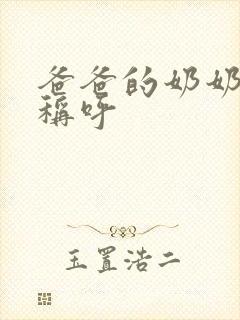 爸爸的奶奶
稱呼
玉置浩二